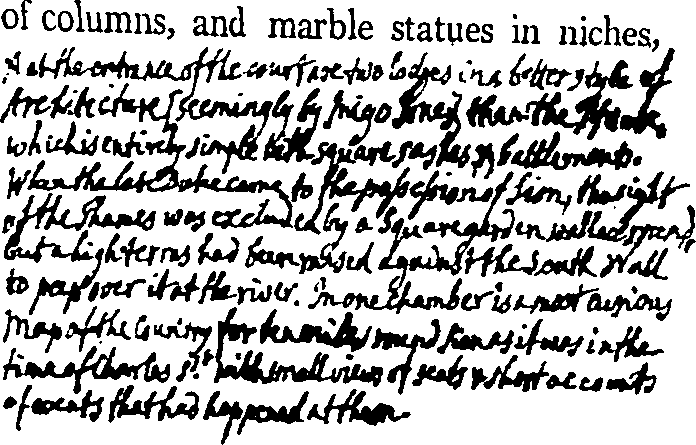 of columns, and marble statues in niches,
& at the entrance of the court are two lodges in a better style of
Architecture [seemingly by Inigo Jones] than the House,
which is entirely simple with square sashes & battlements.
When the late Duke came to the possession of Sion, the sight
of the Thames was excluded by a square garden walled round,
but a high terras had been raised against the South Wall
to peep over it at the river. In one chamber is a most curious
Map of the Country for ten miles round Sion as it was in the
time of Charles 1st with small views of seats & short accounts
of events that had happened at them.